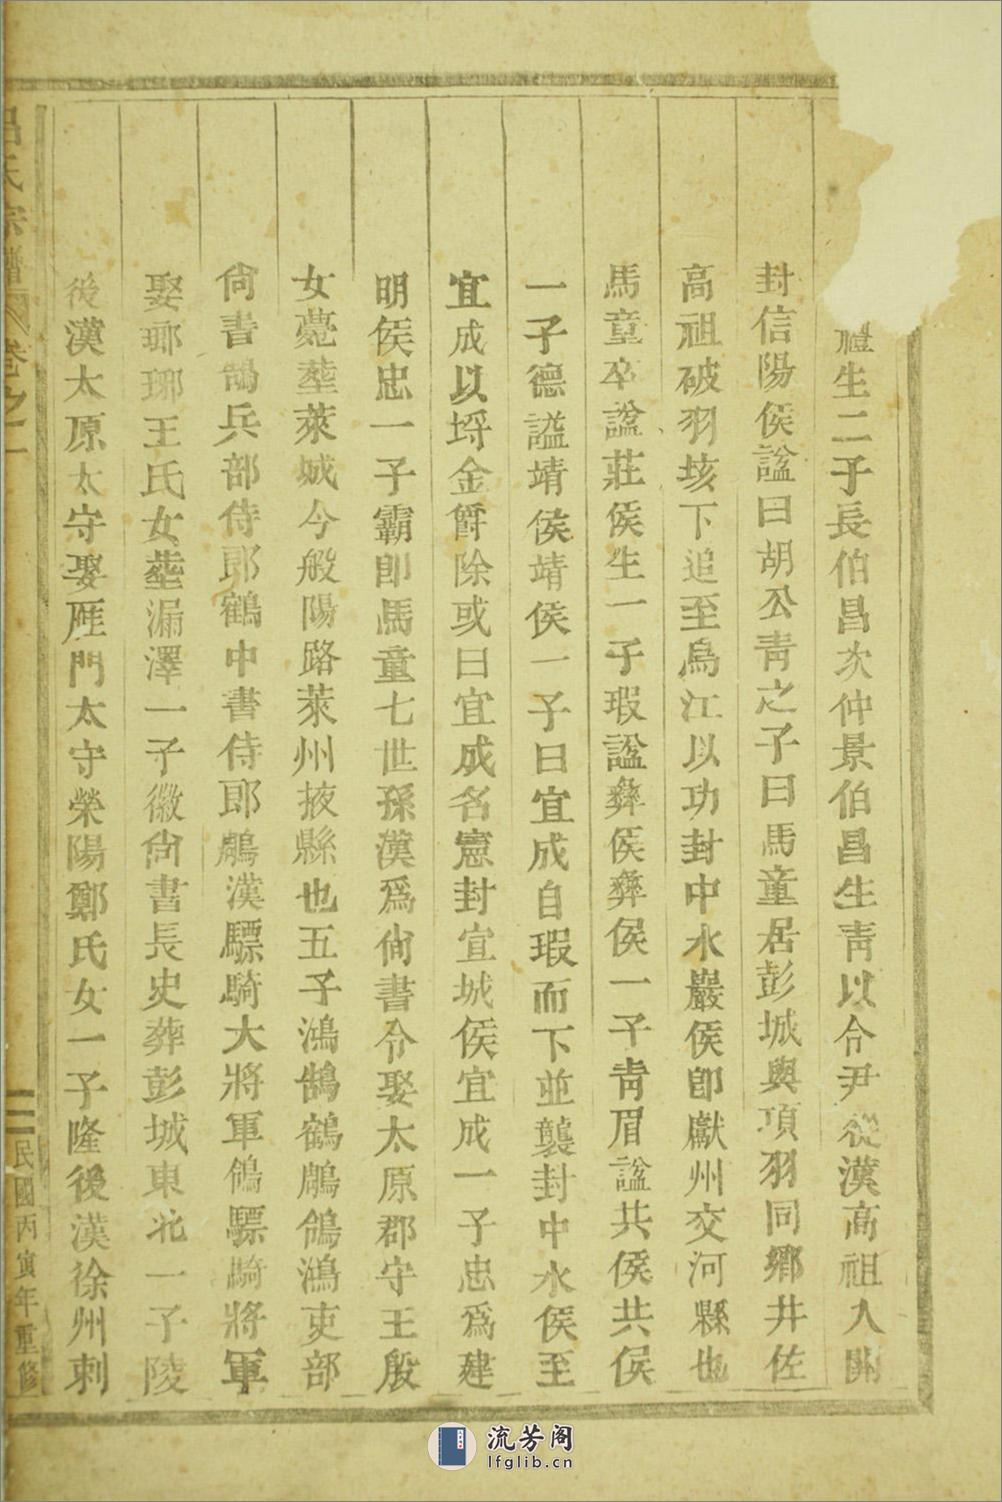 禮生二子長伯昌次仲景伯昌生靑以令尹從漢高祖入關
封信陽侯諡曰胡公靑之子曰馬童居彭城與項羽同鄉井佐
高祖破羽垓下追至烏江以功封中水嚴侯卽獻州交河縣也
馬童卒諡莊侯生一子瑕諡彝侯彝侯一子靑眉諡共侯共侯
一子德謚靖侯靖侯一子曰宜成自瑕而下並襲封中水侯至
宜成以埒金爵除或曰宜成名憲封宜城侯宜成一子忠爲建
明侯忠一子霸卽馬童七世孫漢爲尙書令娶太原郡守王殷
女薨塟萊城今般陽路萊州掖縣也五子鴻鵠鶴鷫鴿鴻吏部
尙書鵠兵部侍郎鶴中書侍郎鷫漢驃騎大將軍鴿驃騎將軍
娶瑯琊王氏女塟漏澤一子徽尙書長史葬彭城東北一子陵
後漢太原太守娶雁門太守榮陽鄭氏女一子隆後漢徐州刺
呂氏宗譜 卷之一 二 民國丙寅年重修
流芳阁
lfglib.cn